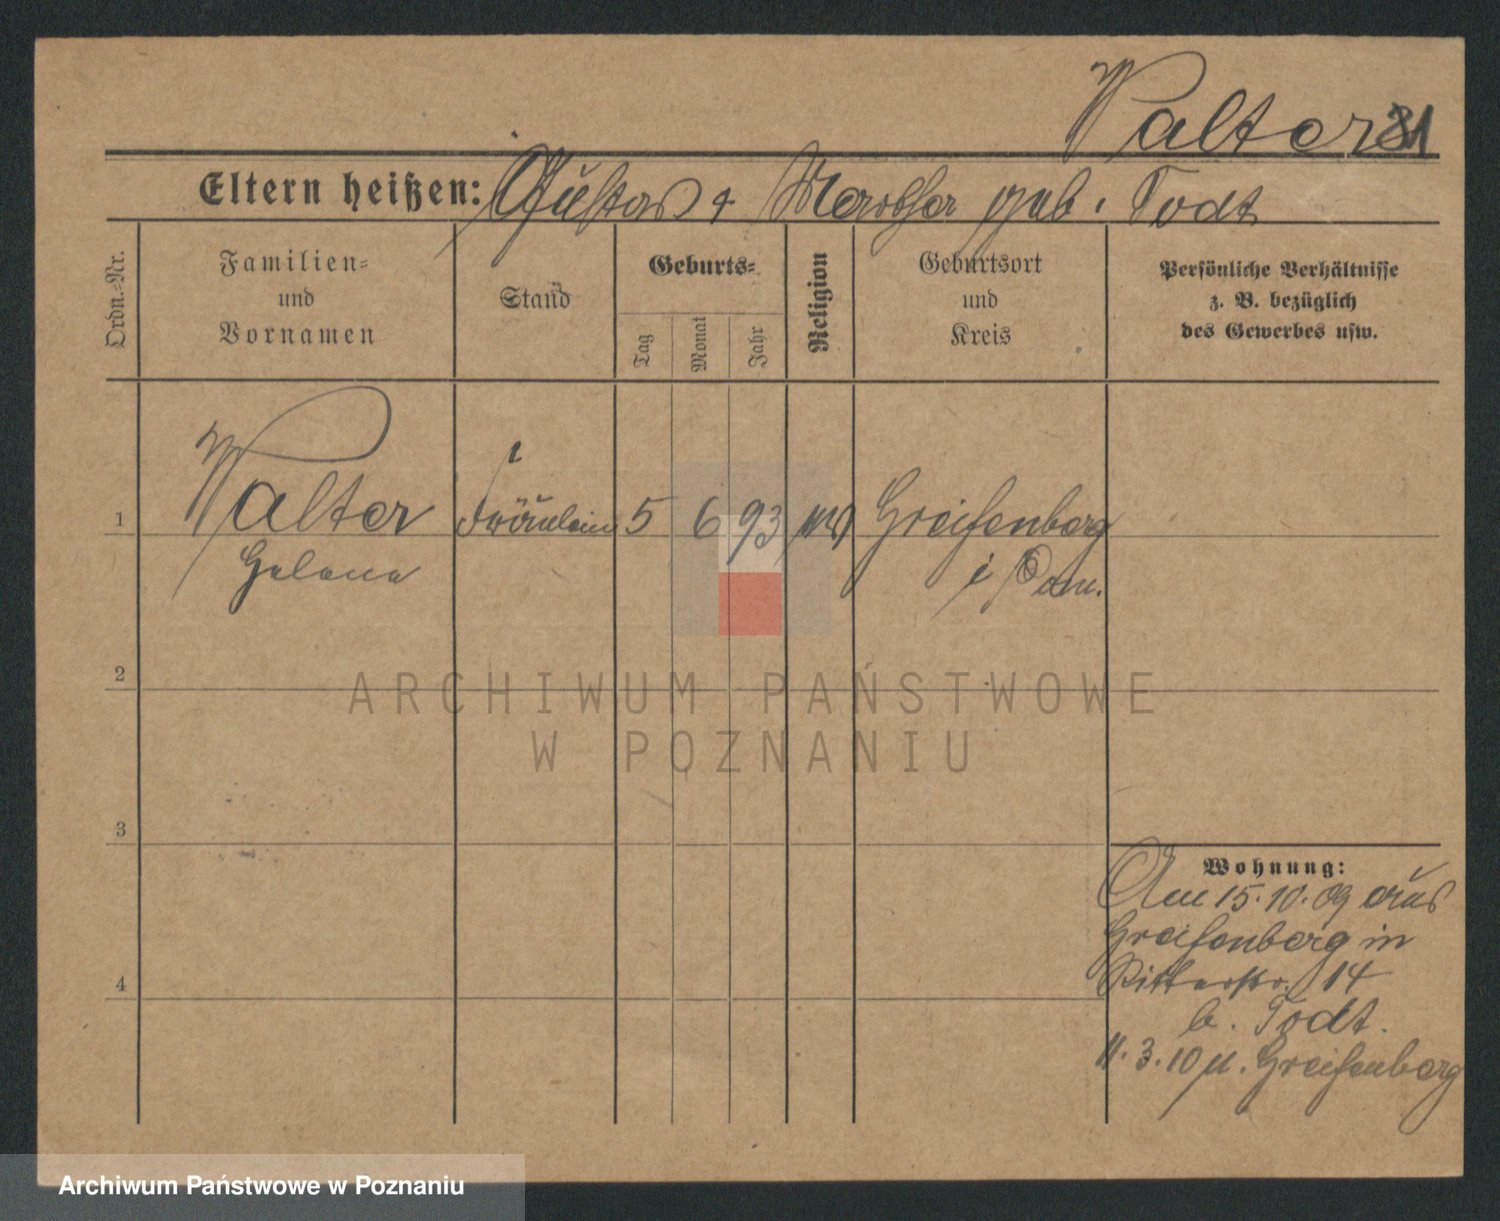 Walter 81
Eltern heißen: Gustav & Martha geb. Todt
Ordn.-Nr.
Familien-
und
Vornamen
Stand
Geburts-
Tag
Monat
Jahr
Religion
Geburtsort
und
Kreis
Persönliche Verhältnisse
z. B. bezüglich
des Gewerbes usw.
1
Walter Fräulein 5 6 93 Greifenberg
Helene i Pom.
2
ARCHIWUM PAŃSTWOWE
W POZNANIU
3
4
Wohnung:
Am 15.10.09 aus
Greifenberg in
Ritterstr. 14
b. Todt.
11.3.10 n. Greifenberg
Archiwum Państwowe w Poznaniu